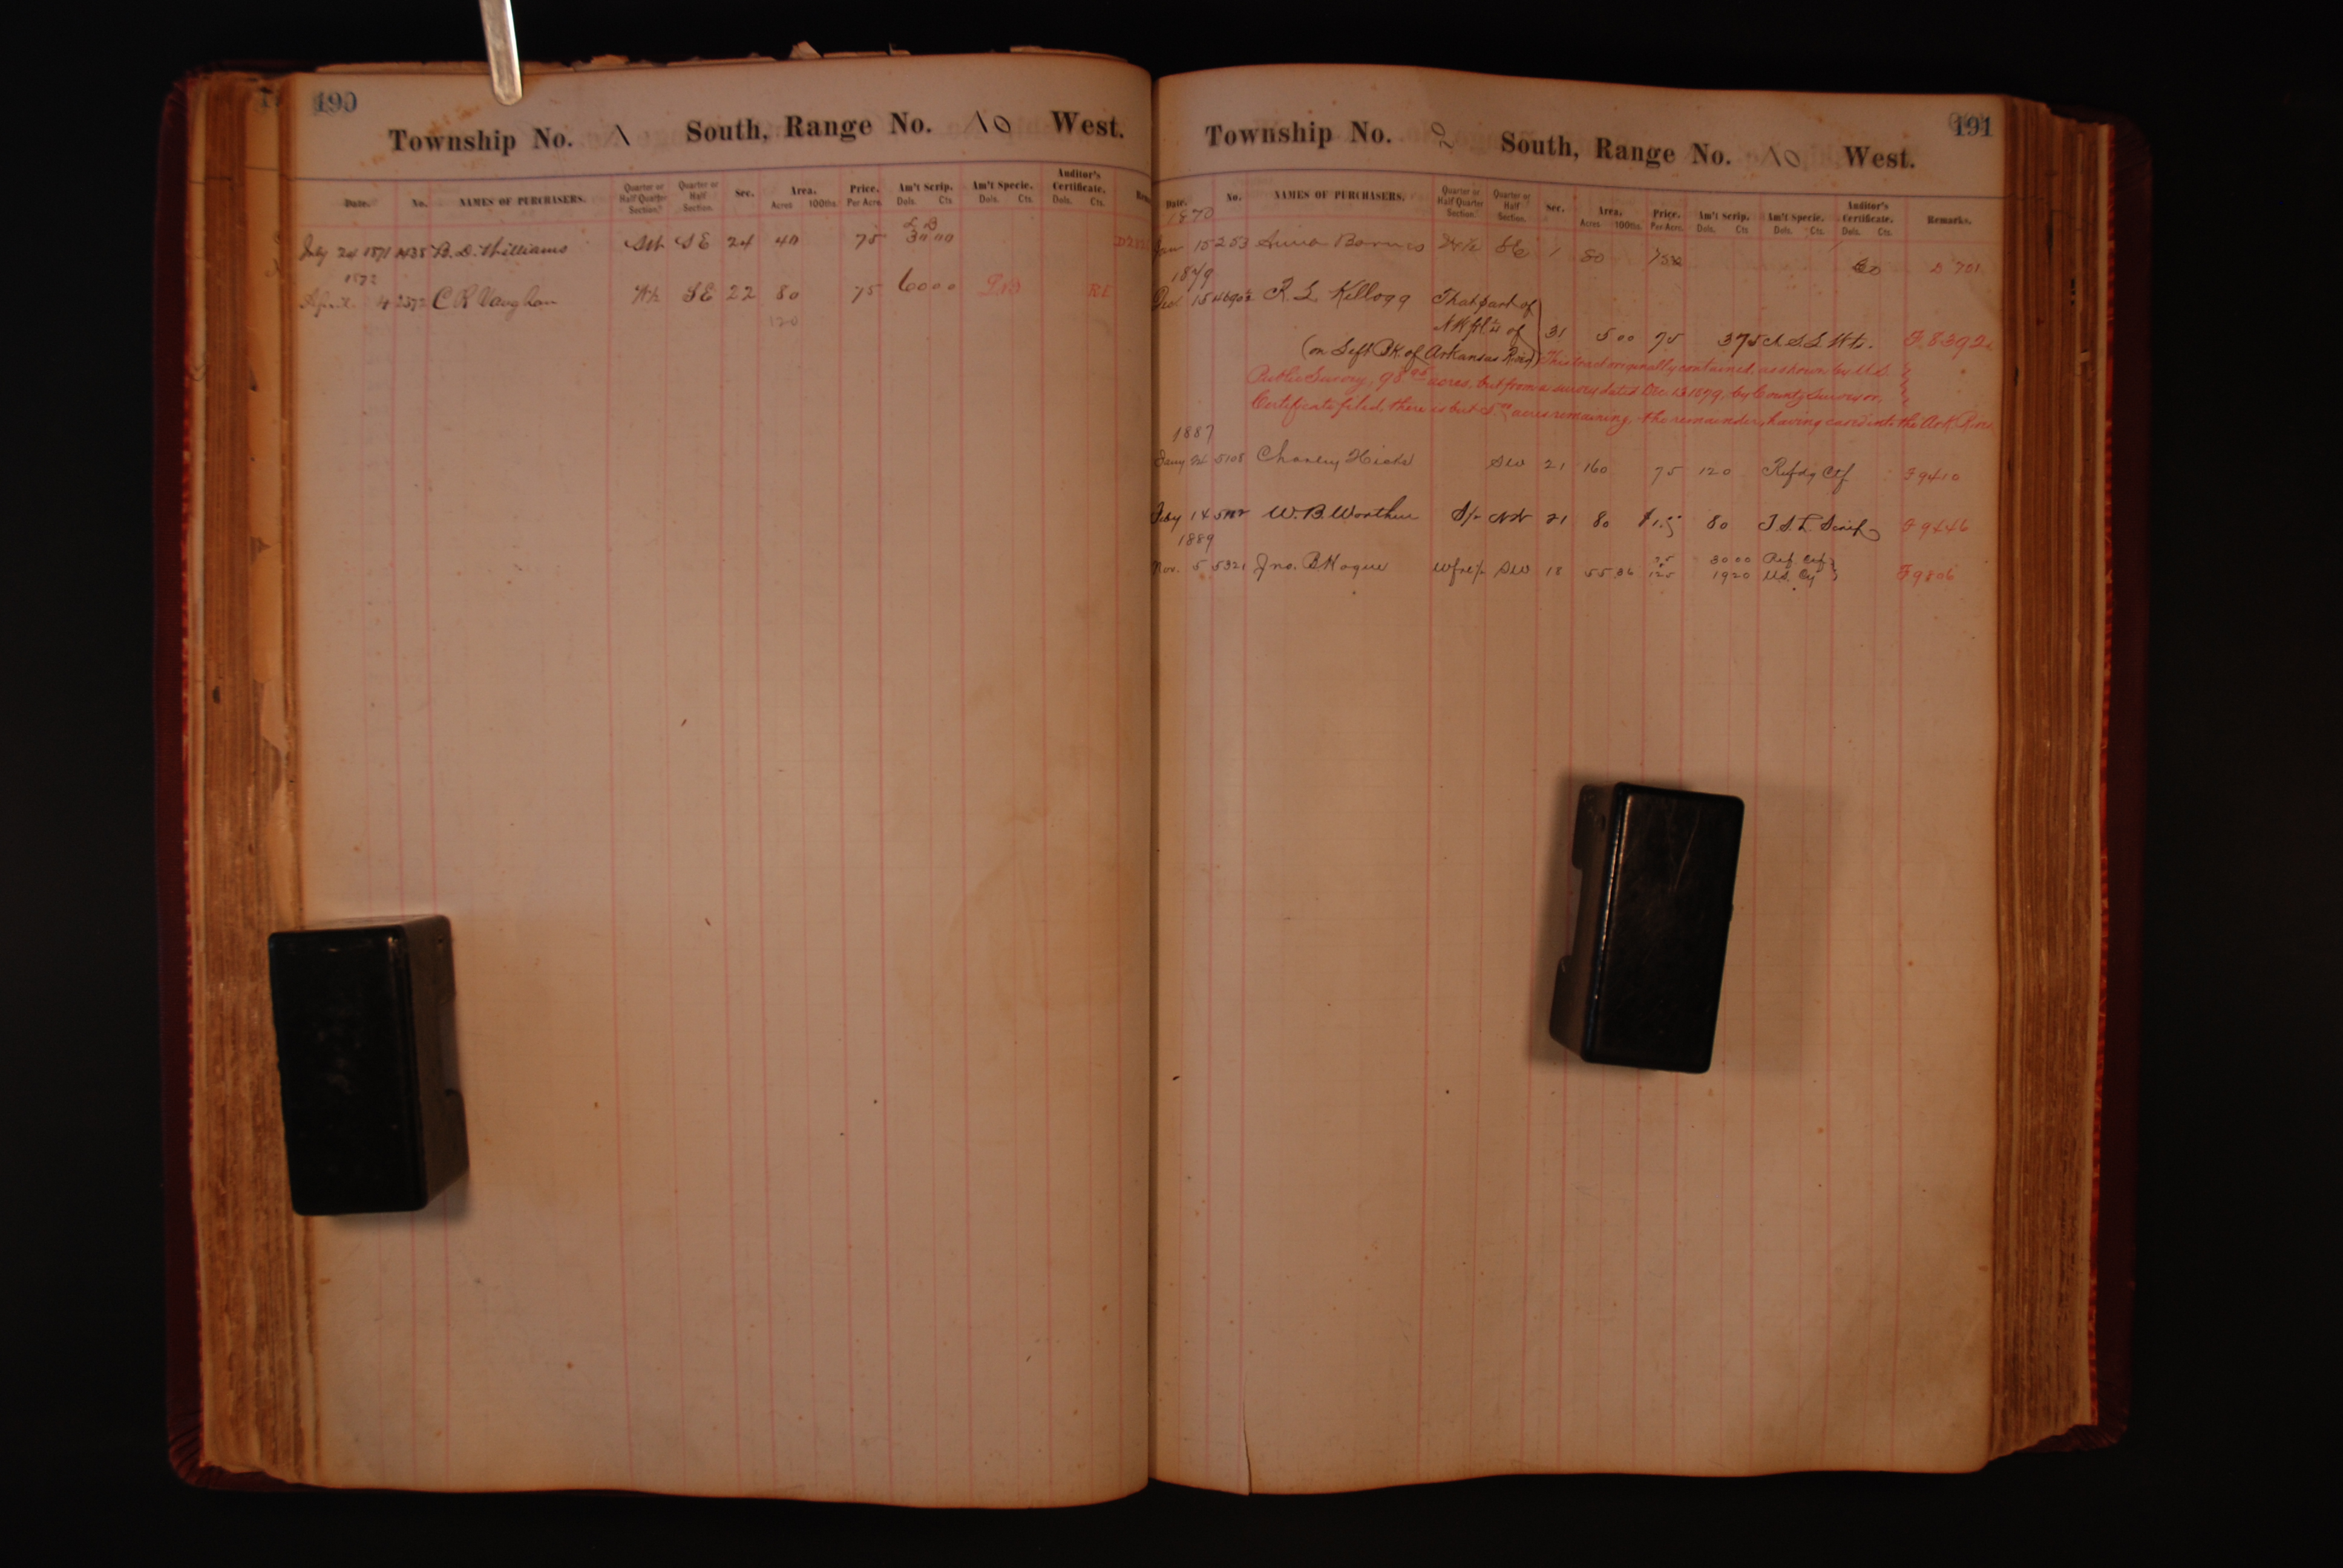 190
Township No. 1 South, Range No. 10 West.
Date. No. NAMES OF PURCHASERS. Quarter or Half Quarter Section. Quarter or Half Section. Sec. Area. Acres 100ths Price. Per Acre Am't Scrip. Dols. Cts Am't Specie. Dols. Cts. Auditor's Certificate. Dols. Cts.
July 24 1871 B. D. Williams SW SE 24 40 75 30 00
1872
April 4 2372 C R Vaughan W½ SE 22 80 75 60 00
120
191
Township No. 2 South, Range No. 10 West.
Date. No. NAMES OF PURCHASERS. Quarter or Half Quarter Section. Quarter or Half Section. Sec. Area. Acres 100ths. Price. Per Acre. Am't Scrip. Dols. Cts Am't Specie. Dols. Cts. Auditor's Certificate. Dols. Cts. Remarks.
1870
Jan 15 253 Anna Barnes SE 1 80 60 D 701
1879
Dec 15 R. L. Kellogg That part of
NW frl ¼ of 31 5 00 75 375 F 8392
(on Left BK. of Arkansas River) This tract originally contained, as shown by U.S.
Public Survey, 98 acres, but from a survey dated Dec. 13 1879, by County Surveyor,
Certificate filed, there is but 5 acres remaining, the remainder, having caved into the Ark River
1887
Jany 24 5108 Charley Hicks SW 21 160 75 120 Refdg Ctf F 9410
Feby 14 W. B. Worthen S½ NW 21 80 80 Scrip F 9446
1889
Nov. 5 5321 Jno. B Hogue W fr ½ SW 18 55 36 75 30 00 Ref. Ctf
125 19 20 U.S. Cy F 9806